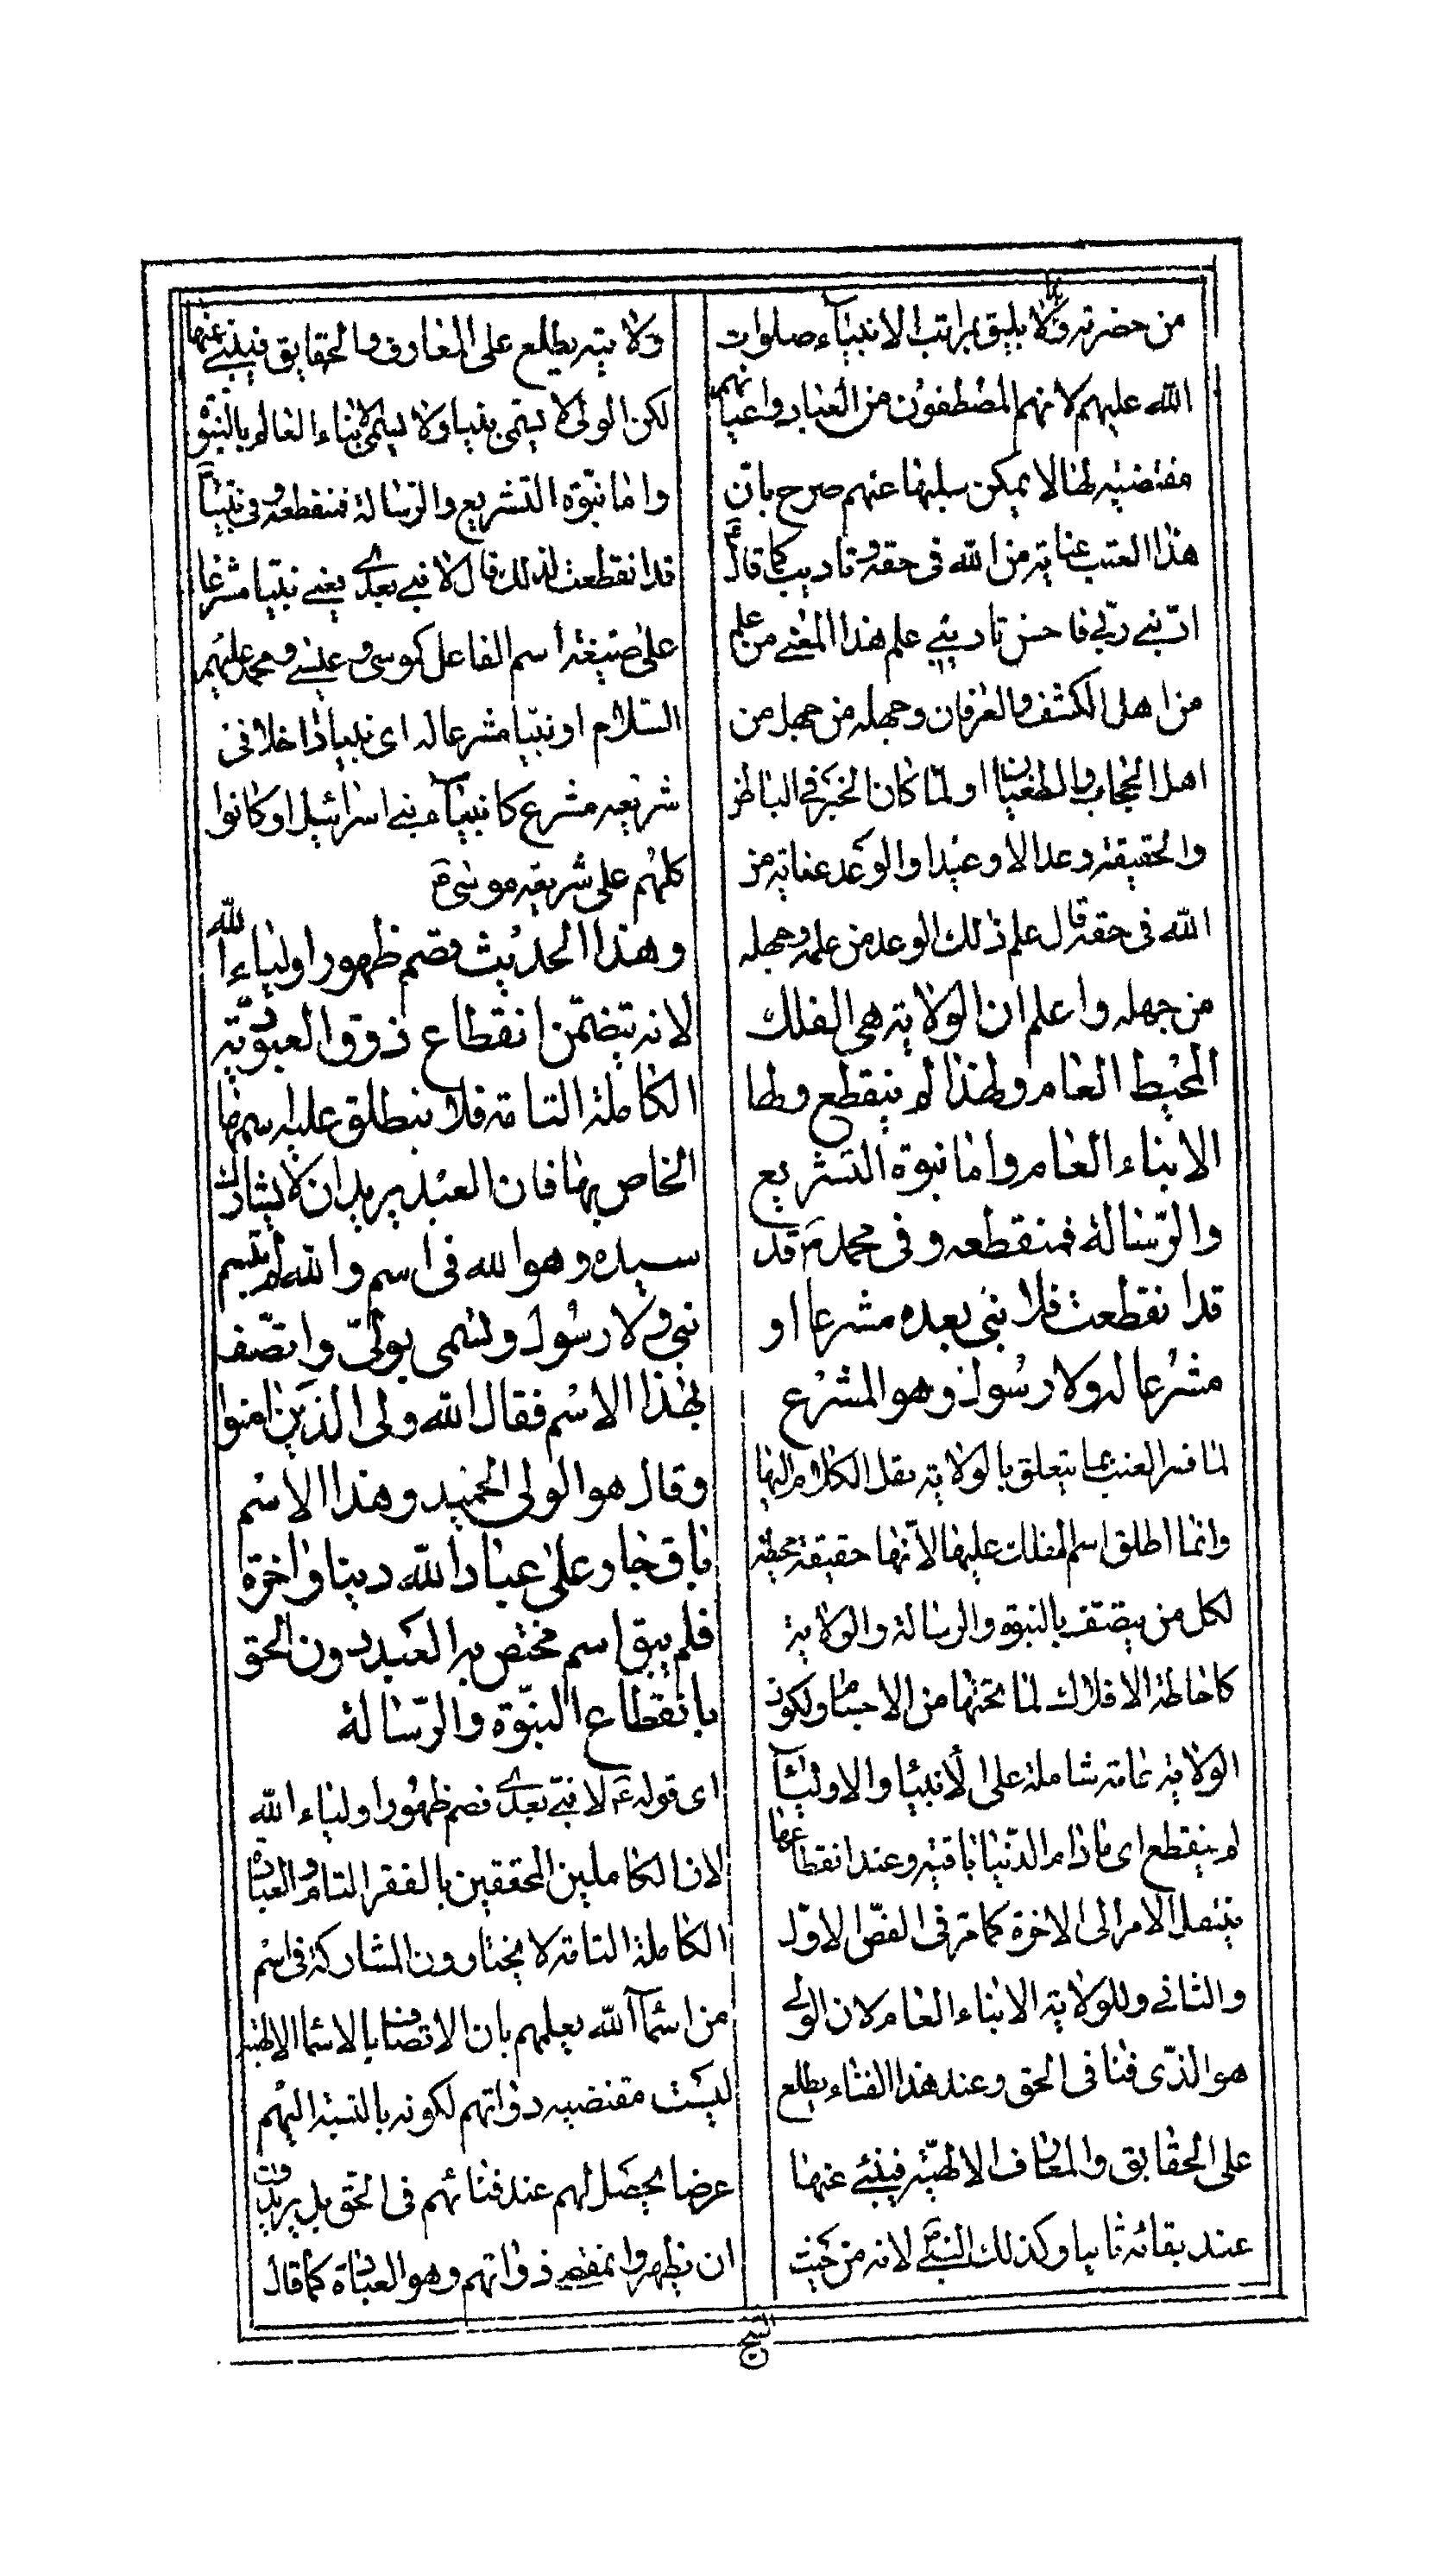 من حضرته وكما لا يليق بمراتب الانبيآء صلوات
الله عليهم لانهم المصطفون من العباد واعيانهم
مقتضيه لها لا يمكن سلبها عنهم صرح بان
هذا العتب عناية من الله فى حقه وتاديب كما قال
ادّبنى ربّى فاحسن تاديبى علم هذا المعنى من علم
من اهل الكشف والعرفان وجهله من جهل من
اهل الحجاب والطغيان اولمّا كان الخبر فى الباطن
والحقيقة وعدا لا وعيدا والوعد عناية من
الله فى حقه قال علم ذلك الوعد من علمه وجهله
من جهله واعلم ان الولاية هى الفلك
المحيط العام ولهذا لم ينقطع ولها
الانباء العام واما نبوة التشريع
والرّسالة فمنقطعه وفى محمد ص قد
قد انقطعت فلا نبى بعده مشرعا او
مشرعا له ولا رسول وهو المشرع
لما فسر العتب بما يتعلق بالولاية نقل الكلام اليها
وانما اطلق اسم الفلك عليها لانّها حقيقة محيطة
لكل من يتصف بالنبوة والرسالة والولاية
كاحاطة الافلاك لما تحتها من الاجسام ولكون
الولاية عامة شاملة على الأنبيا والاوليآ
لم ينقطع اى مادام الدّنيا باقية وعند انقطاعها
ينتقل الامر الى الاخرة كما مر فى الفصّ الاوّل
والثانى وللولاية الانباء العام لان الولى
هو الذّى فنا فى الحق وعند هذا الفناء يطلع
على الحقايق والمعارف الالهيّة فينبئ عنها
عند بقائه ثانيا وكذلك النبى لانه من حيث
ولايته يطلع على المعارف والحقايق فينبئ عنها
لكن الولى لا يسمى بنبيا ولا يسمى الانباء العام بالنبوّة
واما نبوّة التشريع والرّسالة فمنقطعة وفى نبيّنا
قد انقطعت لذلك قال لا نبى بعدى يعنى نبيّا مشرعا
على صيغة اسم الفاعل كموسى وعيسى ومحمد عليهم
السّلام او نبيّا مشرعا له اى نبيا داخلا فى
شريعه مشرع كانبيآء بنى اسرائيل اذ كانوا
كلهم على شريعه موسى ع
وهذا الحديث قصم ظهور اولياء الله
لانه يتضمّن انقطاع ذوق العبوديّة
الكاملة التامة فلا ينطلق عليه اسمها
الخاص بها فان العبد يريد ان لا يشارك
سيده وهو الله فى اسم والله لم يتسم
نبى ولا رسول وتسمى بولىّ واتصّف
بهذا الاسم فقال الله ولى الذين امنوا
وقال هو الولى الحميد وهذا الاسم
باق جار على عباد الله دنيا واخرة
فلم يبق اسم مختص به العبد دون الحق
بانقطاع النبّوة والرّسالة
اى قوله ع لا نبّى بعدى قصم ظهور اولياء الله
لان الكاملين المحققين بالفقر التام والعبادة
الكاملة التامة لا يختارون المشاركة فى اسم
من اسمآ الله يعلمهم بان الاتصاف بالاسما الالهية
ليست مقتضيه ذواتهم لكونه بالنسبة اليهم
عرضا يحصل لهم عند فنائهم فى الحق بل يريدون
ان يظهروا بمقتضى ذواتهم وهو العبادة كما قال
الشيخ